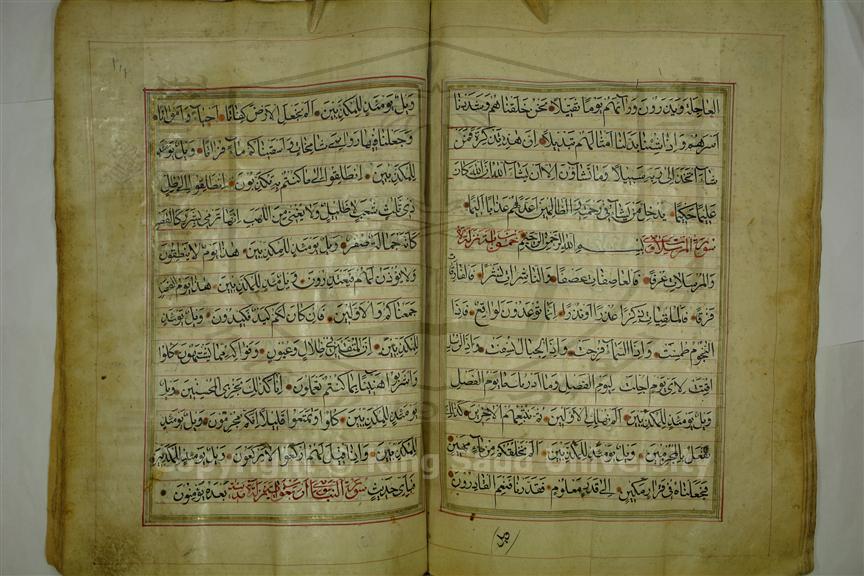 العاجلة ويذرون وراءهم يوما ثقيلا نحن خلقناهم وشددنا
اسرهم واذا شئنا بدلنا امثالهم تبديلا ان هذه تذكرة فمن
شاء اتخذ الى ربه سبيلا وما تشاؤن الا ان يشاء الله ان الله كان
عليما حكيما يدخل من يشاء في رحمته والظالمين اعد لهم عذابا اليما
سورة المرسلات بسم الله الرحمن الرحيم خمسون اية
والمرسلات عرفا فالعاصفات عصفا والناشرات نشرا فالفارقات
فرقا فالملقيات ذكرا عذرا او نذرا انما توعدون لواقع فاذا
النجوم طمست واذا السماء فرجت واذا الجبال نسفت واذا الرسل
اقتت لاي يوم اجلت ليوم الفصل وما ادريك ما يوم الفصل
ويل يومئذ للمكذبين الم نهلك الاولين ثم نتبعهم الاخرين كذلك
نفعل بالمجرمين ويل يومئذ للمكذبين الم نخلقكم من ماء مهين
فجعلناه في قرار مكين الى قدر معلوم فقدرنا فنعم القادرون
ويل يومئذ للمكذبين الم نجعل الارض كفاتا احياء وامواتا
وجعلنا فيها رواسي شامخات واسقيناكم ماء فراتا ويل يومئذ
للمكذبين انطلقوا الى ما كنتم به تكذبون انطلقوا الى ظل
ذي ثلث شعب لا ظليل ولا يغني من اللهب انها ترمي بشرر كالقصر
كانه جمالة صفر ويل يومئذ للمكذبين هذا يوم لا ينطقون
ولا يؤذن لهم فيعتذرون ويل يومئذ للمكذبين هذا يوم الفصل
جمعناكم والاولين فان كان لكم كيد فكيدون ويل يومئذ
للمكذبين ان المتقين في ظلال وعيون وفواكه مما يشتهون كلوا
واشربوا هنيئا بما كنتم تعملون انا كذلك نجزي المحسنين ويل
يومئذ للمكذبين كلوا وتمتعوا قليلا انكم مجرمون ويل يومئذ
للمكذبين واذا قيل لهم اركعوا لا يركعون ويل يومئذ للمكذبين
فباي حديث سورة النبا بعده يؤمنون
King Saud University